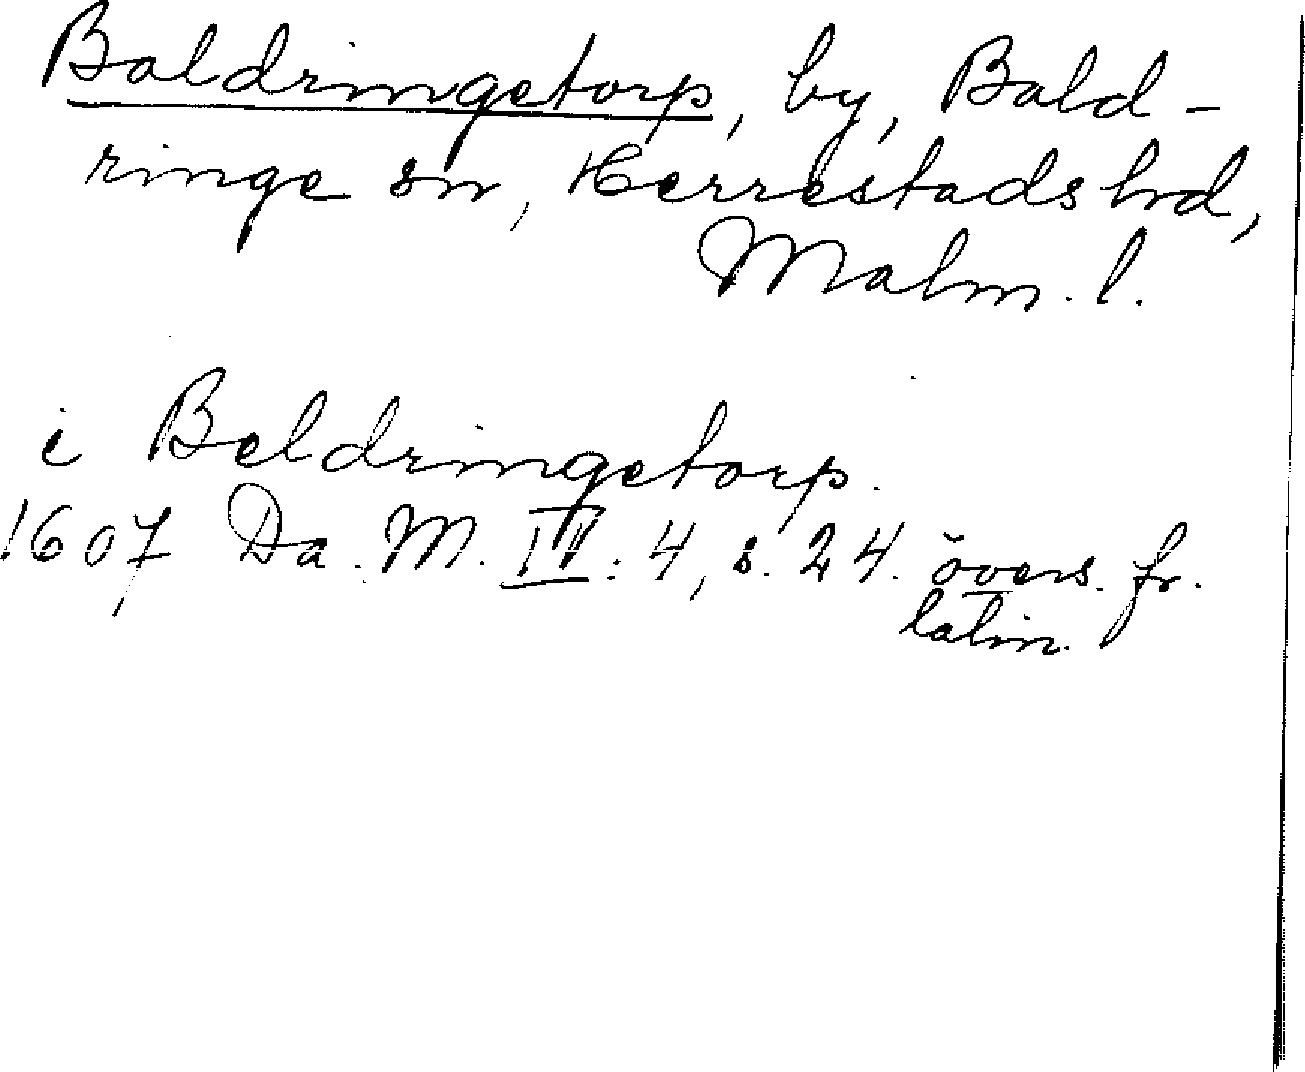 Baldringetorp, by, Bald-
ringe sn, Herrestads hd,
Malm. l.
i Beldringetorp.
1607 Da. M. IV: 4, s. 24. övers. fr.
latin.